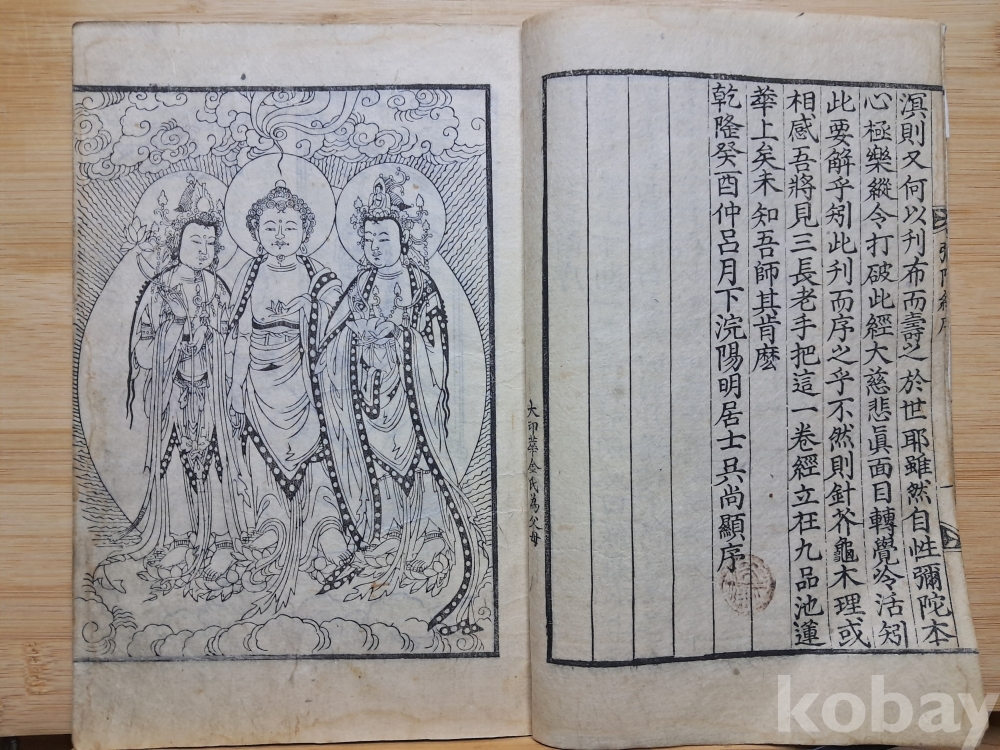 溟則又何以刋布而壽之於世耶雖然自性彌陀本
心極樂縱令打破此經大慈悲眞面目轉覺冷活矧
此要解乎矧此刋而序之乎不然則針芥龜木理或
相感吾將見三長老手把這一卷經立在九品池蓮
華上矣未知吾師其肯麽
乾隆癸酉仲呂月下浣陽明居士兵尚顯序
彌陀經序
大印華金氏爲父母
kobay